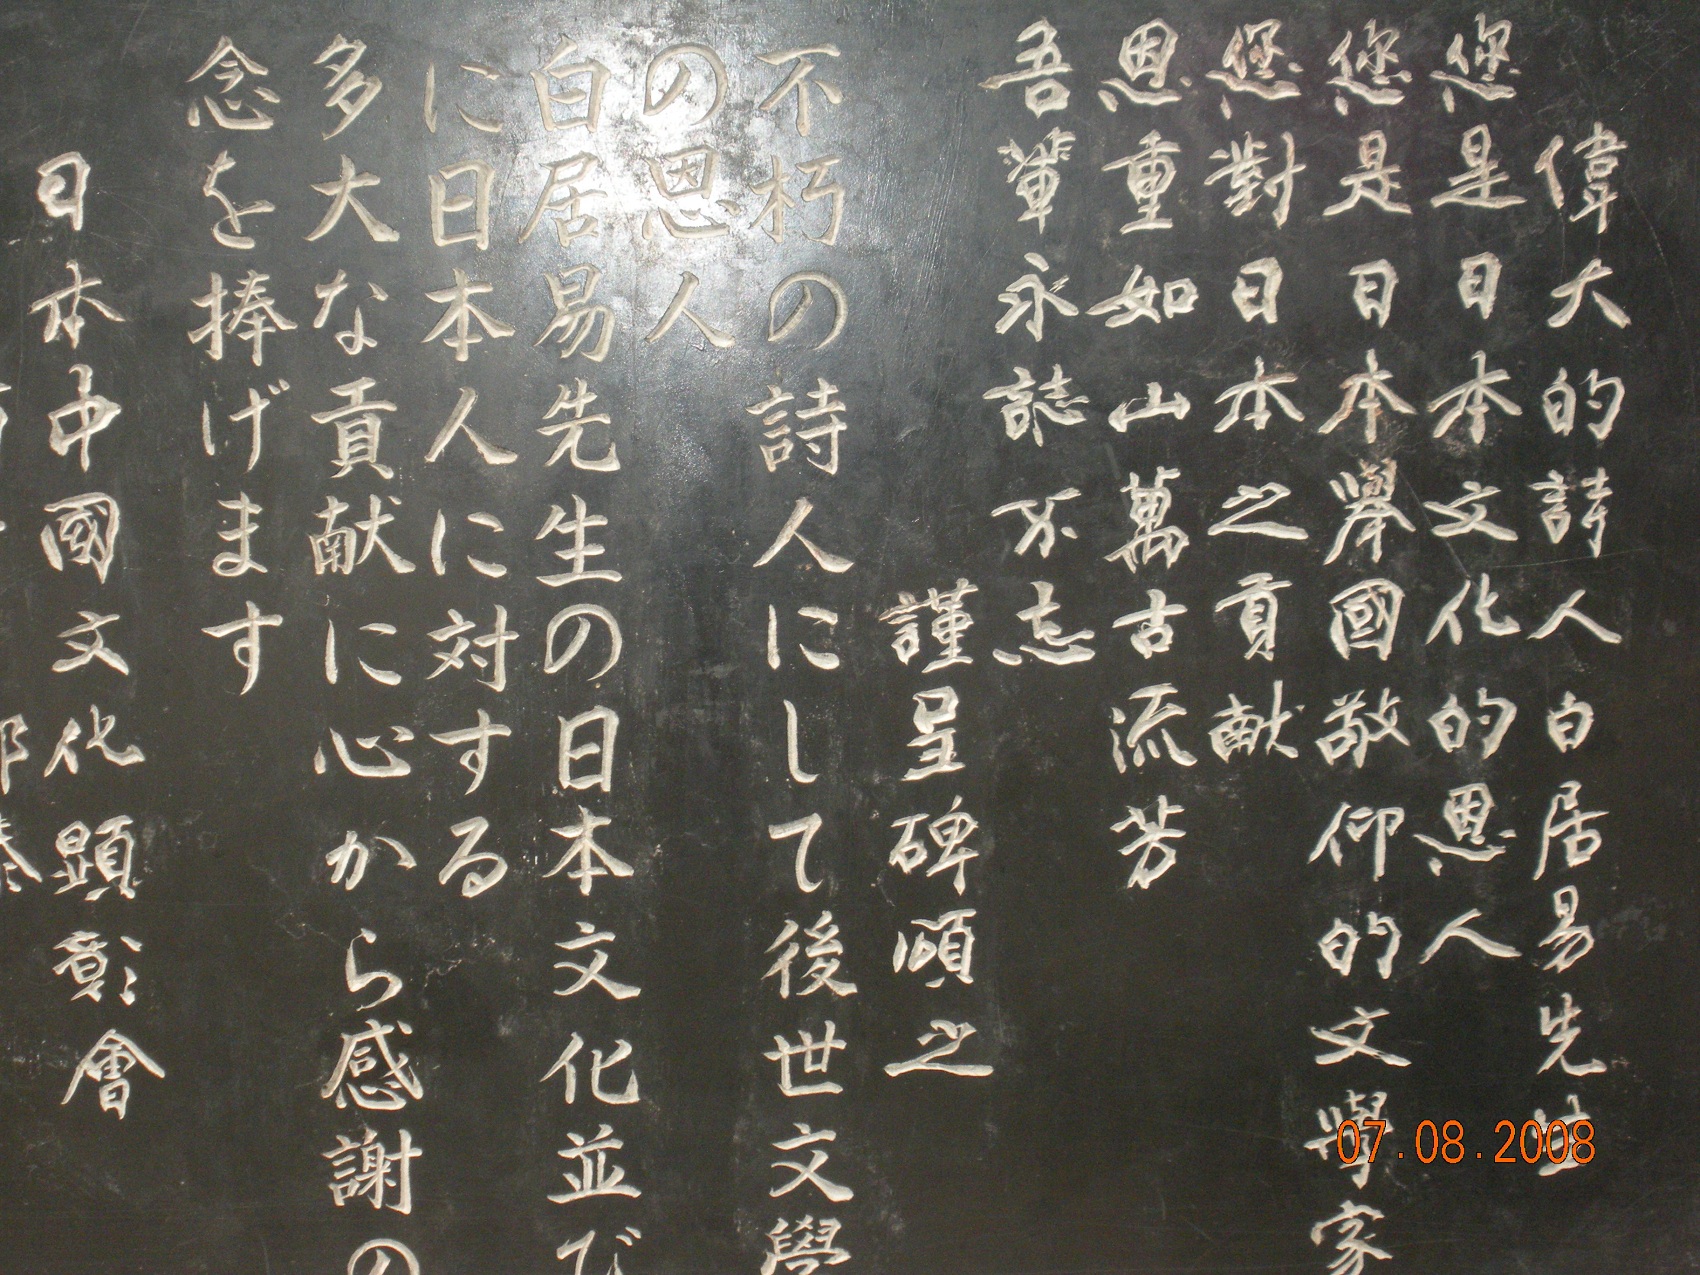 偉大的詩人白居易先生
您是日本文化的恩人
您是日本舉國敬仰的文學家
您對日本之貢献
恩重如山萬古流芳
吾輩永誌不忘
謹呈碑頌之
不朽の詩人にして後世文學
の恩人
白居易先生の日本文化並び
に日本人に対する
多大な貢献に心から感謝の
念を捧げます
日本中國文化顕彰會
07.08.2008